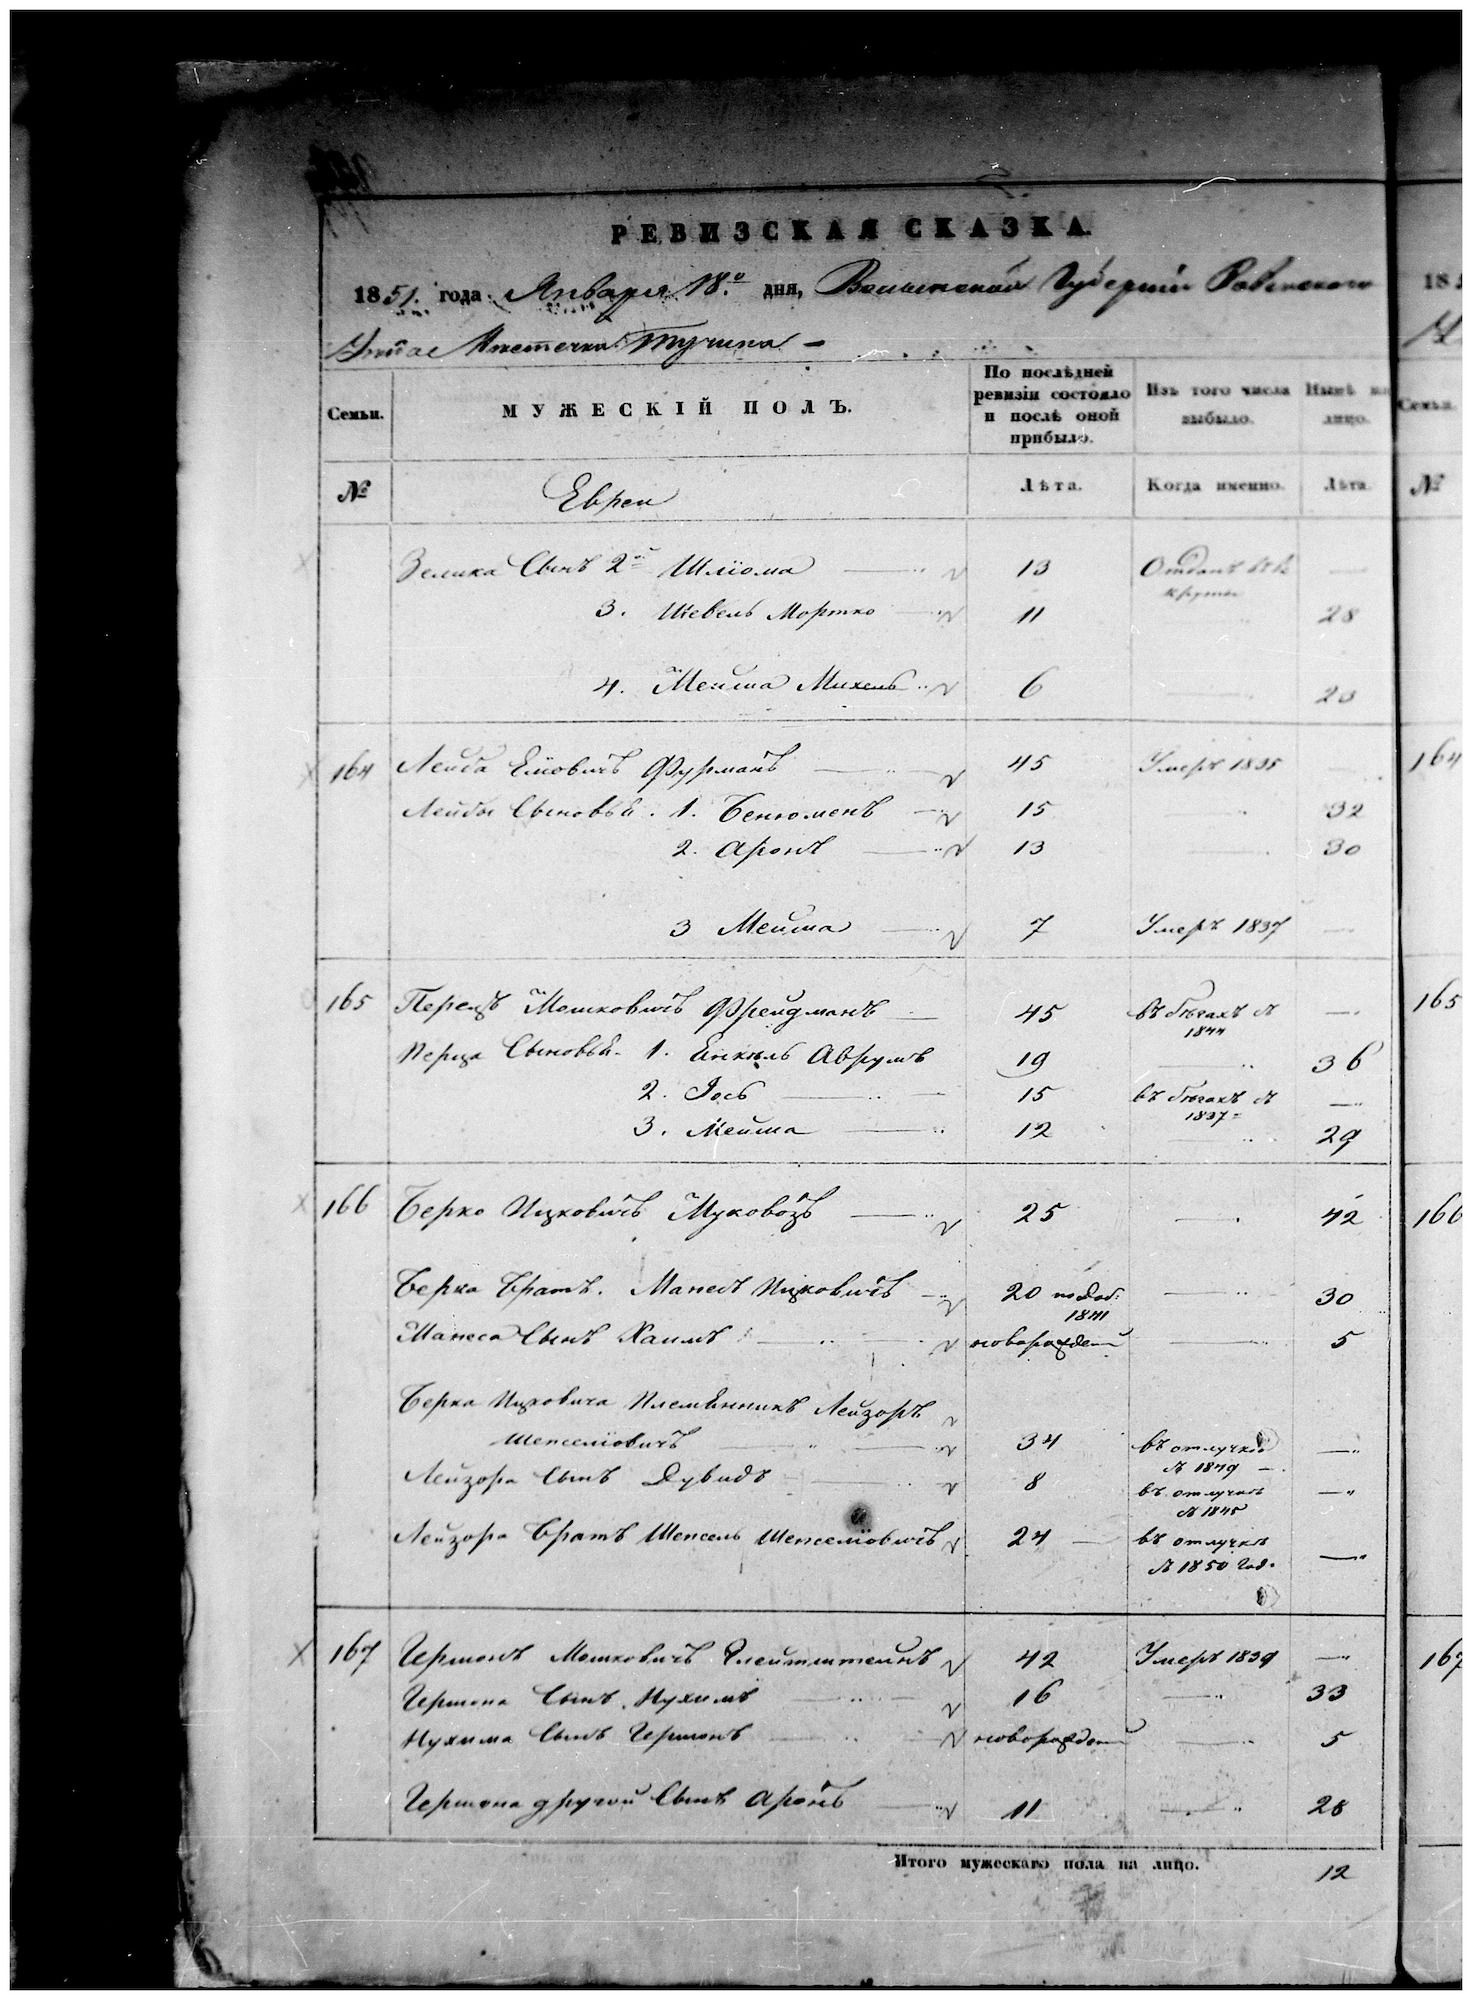 РЕВИЗСКАЯ СКАЗКА.
1851. года Января 18.º дня, Волынской Губерніи Ровенского
Уѣзда Мѣстечка Тучина
Семьи. МУЖЕСКІЙ ПОЛЪ. По послѣдней ревизіи состояло и послѣ оной прибыло. Изъ того числа выбыло. Нынѣ на лицо.
№ Евреи Лѣта. Когда именно. Лѣта.
Зелика Сынъ 2й Шліома 13 Отданъ въ рекруты —
3. Шевель Мортко 11 28
4. Мейша Михель 6 23
164 Лейба Еліовичъ Фурманъ 45 Умеръ 1835 —
Лейбы Сыновья. 1. Бенюменъ 15 — 32
2. Аронъ 13 — 30
3 Мейша 7 Умеръ 1837 —
165 Перецъ Мошковичъ Фрейдманъ 45 въ бѣгахъ съ 1844 —
Перца Сыновья. 1. Янкель Аврумъ 19 — 36
2. Іось 15 въ бѣгахъ съ 1837 —
3. Мейша 12 — 29
166 Берко Ицковичъ Муковозъ 25 — 42
Берка Братъ. Манесъ Ицковичъ 20 — 30
1841
Манеса Сынъ Хаимъ новорожден — 5
Берка Ицковича Племянникъ Лейзоръ
Шепселіовичъ 34 въ отлучкѣ съ 1849 —
Лейзора Сынъ Дувидъ 8 въ отлучкѣ съ 1845 —
Лейзора Братъ Шепсель Шепселіовичъ 24 въ отлучкѣ съ 1850 год. —
167 Гершонъ Мошковичъ Глейтштейнъ 42 Умеръ 1839 —
Гершона Сынъ Нухимъ 16 — 33
Нухима Сынъ Гершонъ новорожден — 5
Гершона другой Сынъ Аронъ 11 — 28
Итого мужескаго пола на лицо. 12
185
№
164
165
166
167